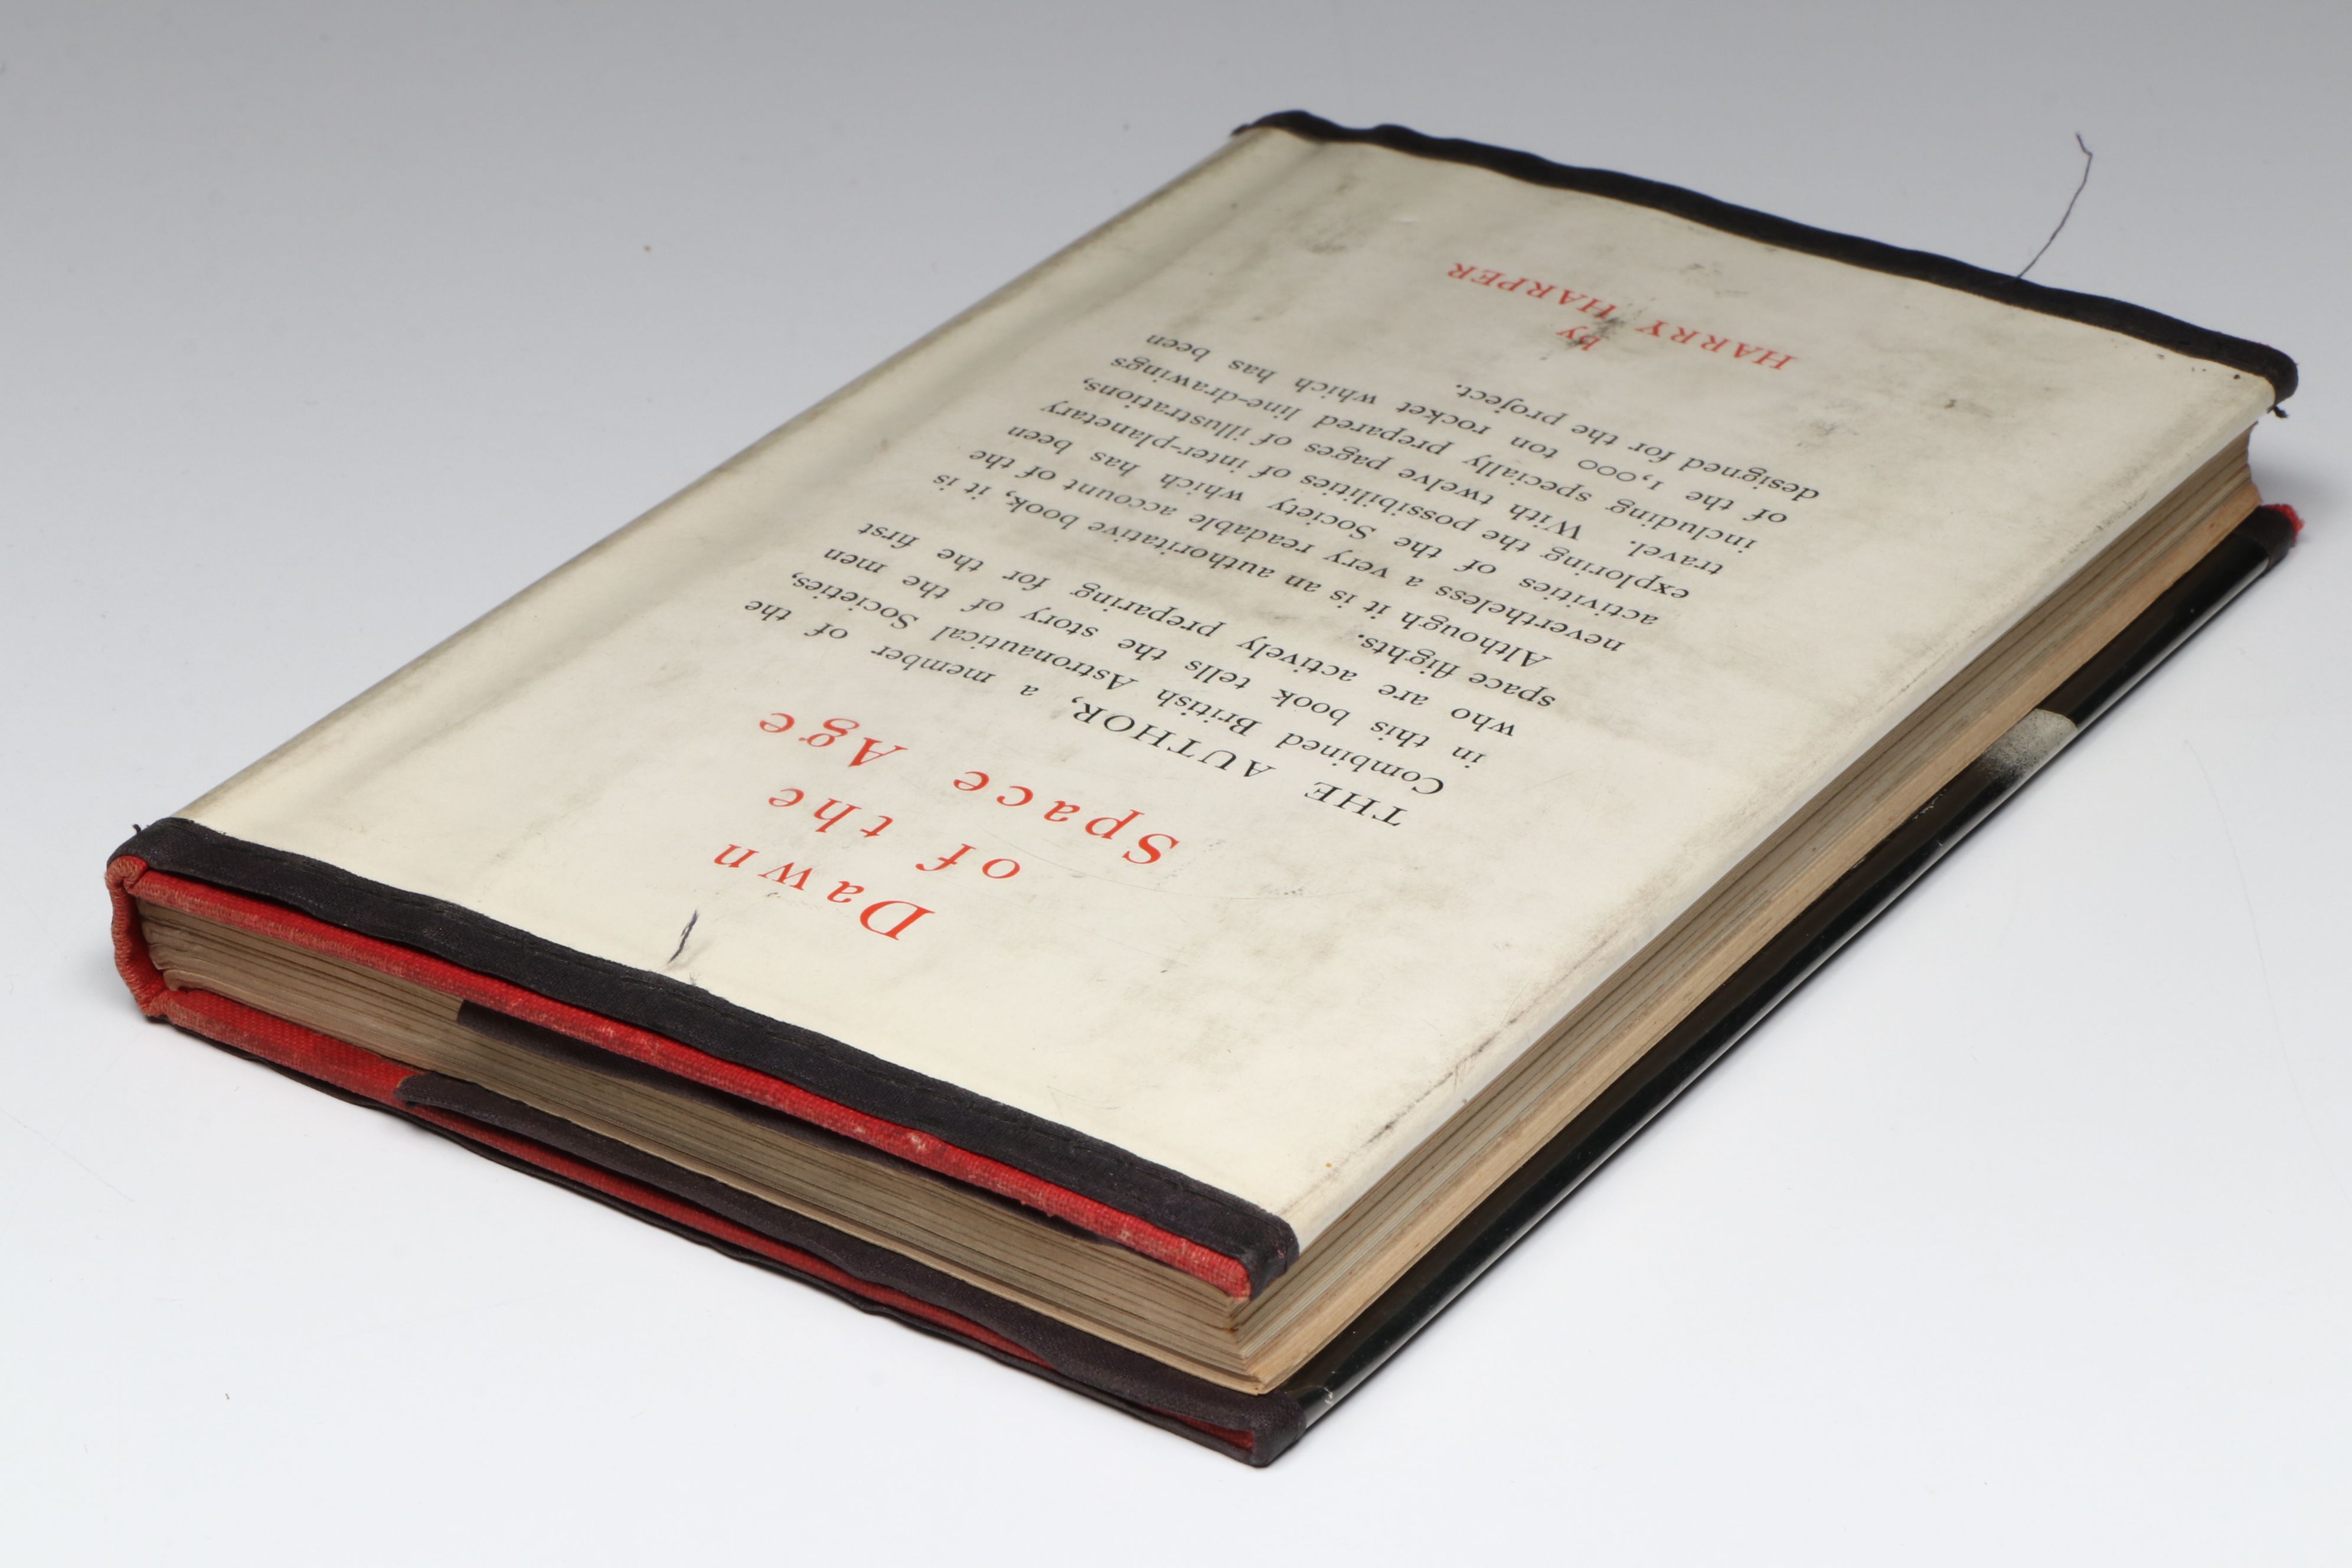 Dawn
of the
Space Age
THE AUTHOR, a member of the
Combined British Astronautical Societies,
in this book tells the story of the men
who are actively preparing for the first
space flights.
Although it is an authoritative book, it is
nevertheless a very readable account of the
activities of the Society which has been
exploring the possibilities of inter-planetary
travel. With twelve pages of illustrations,
including specially prepared line-drawings
of the 1,000 ton rocket which has been
designed for the project.
by
HARRY HARPER